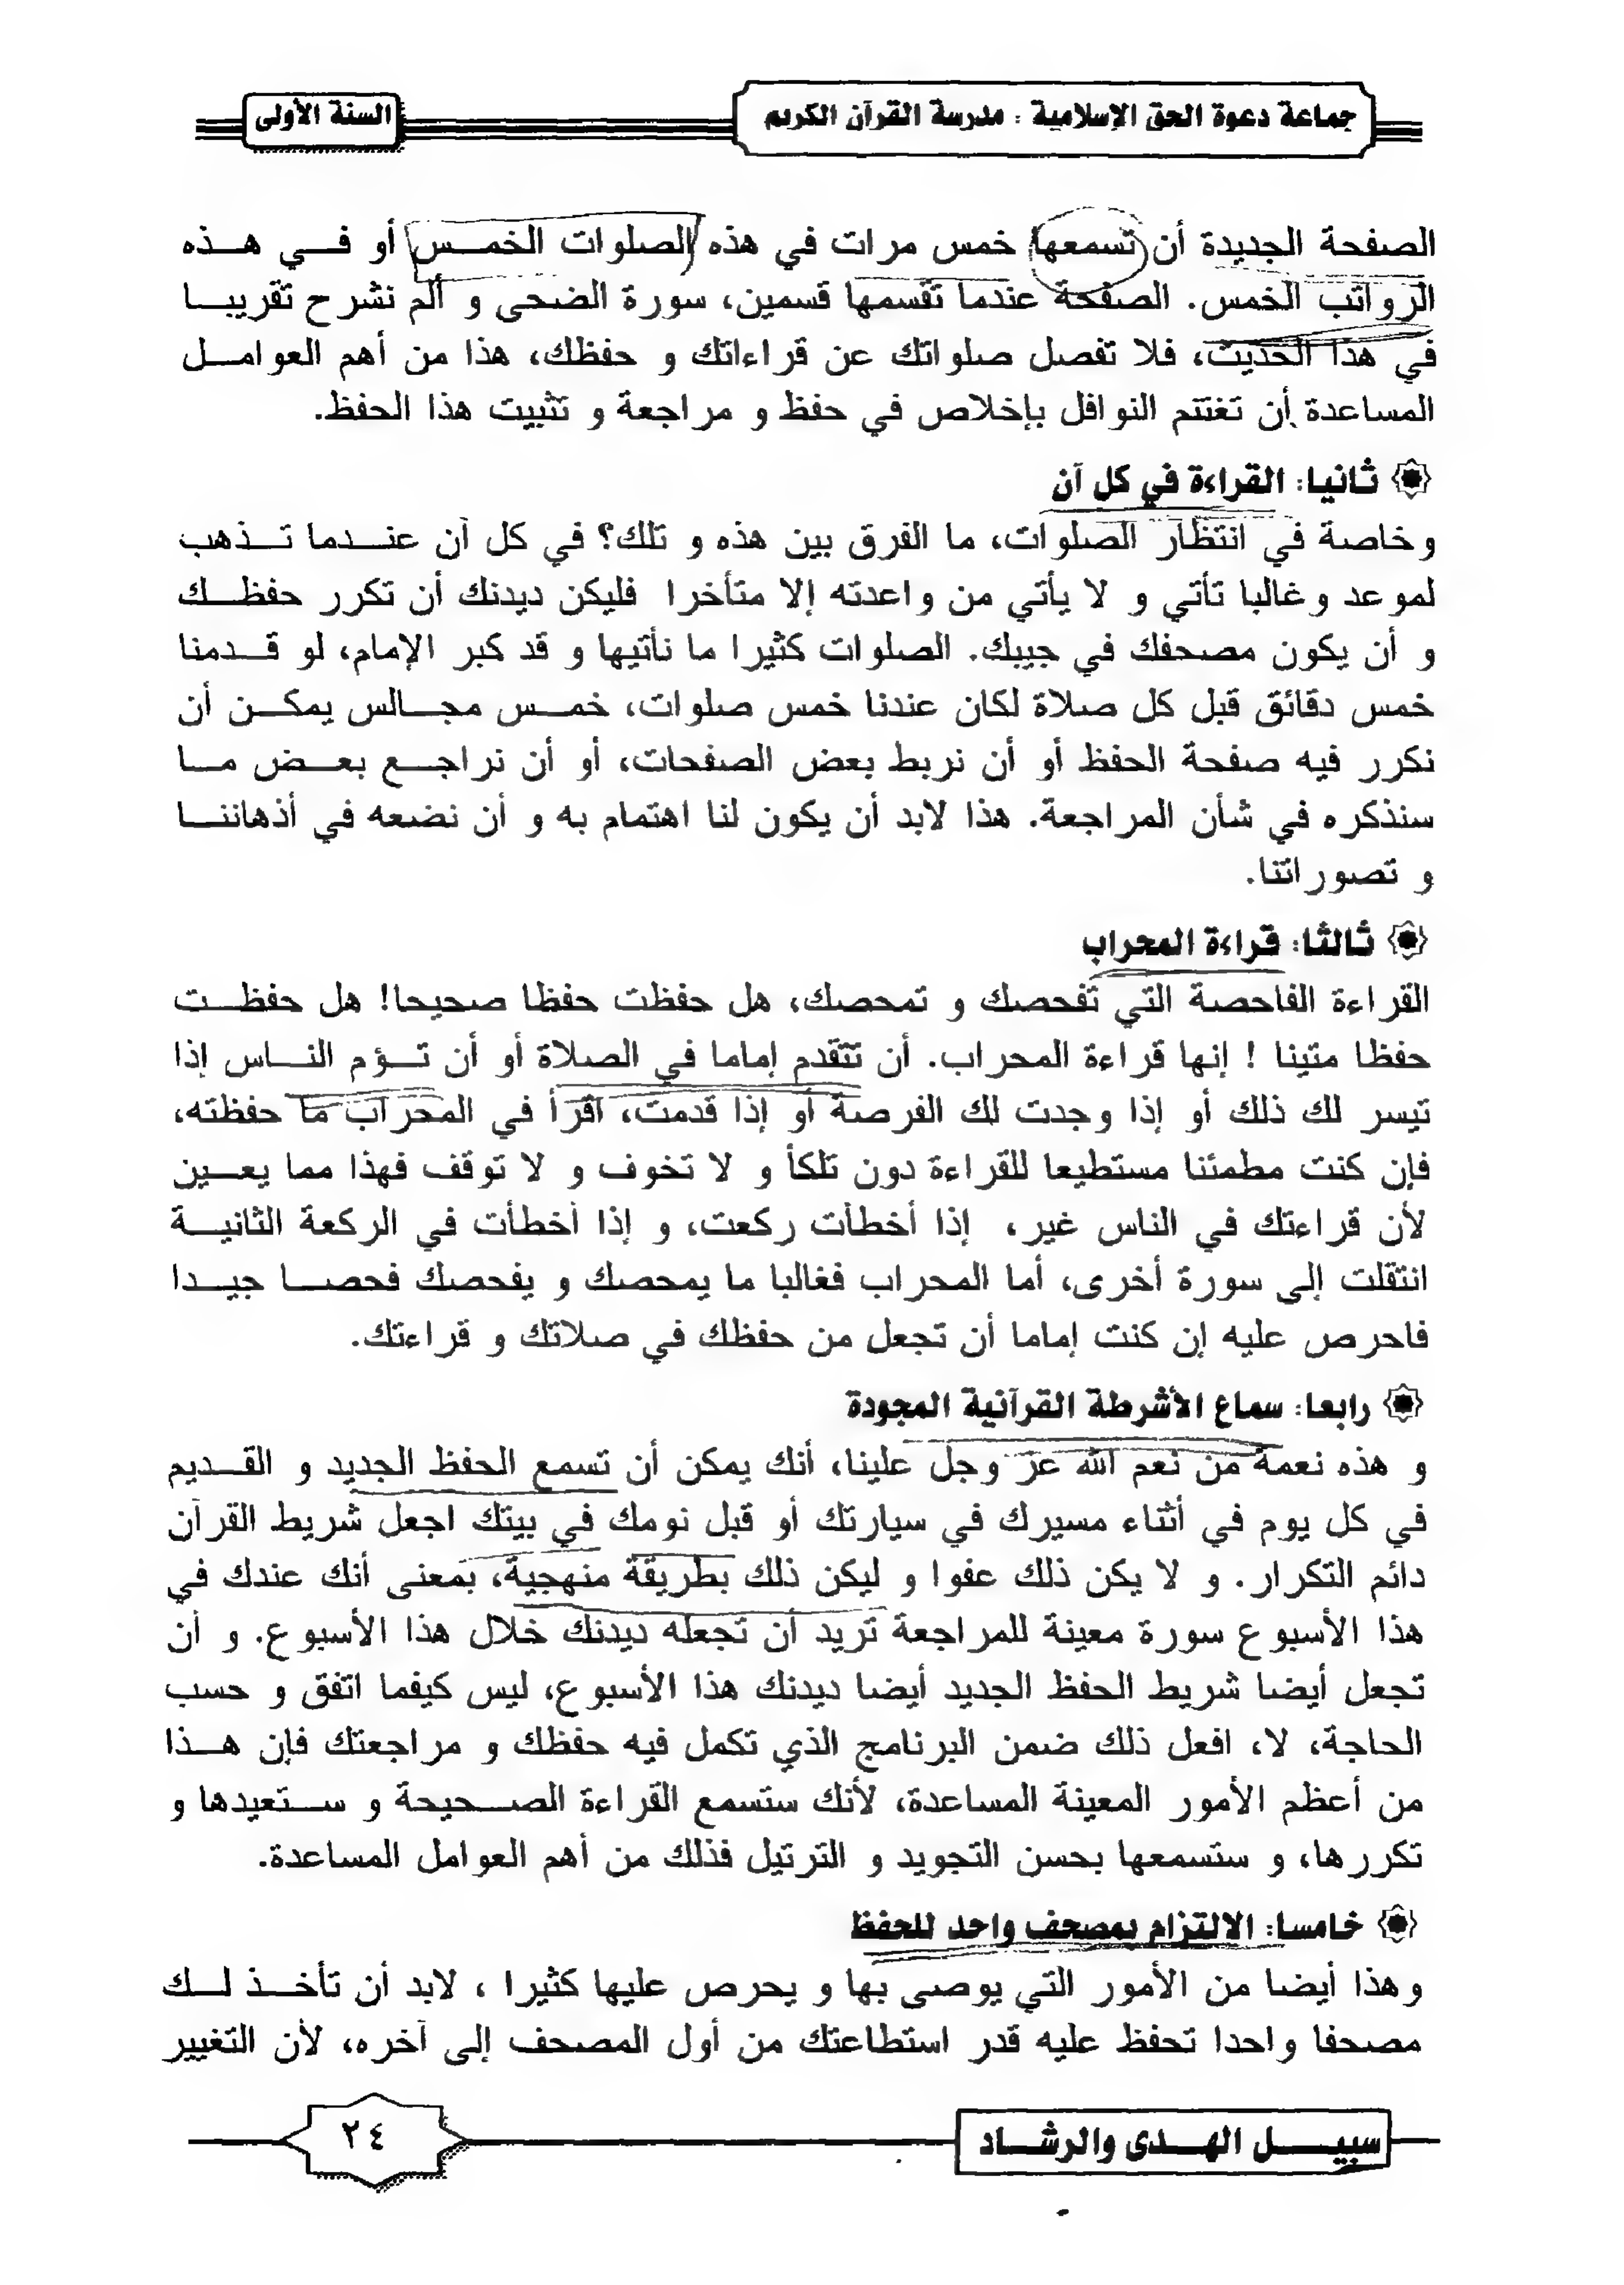 جماعة دعوة الحق الإسلامية : مدرسة القرآن الكريم
السنة الأولى
الصفحة الجديدة أن تسمعها خمس مرات في هذه الصلوات الخمس أو في هذه
الرواتب الخمس. الصفحة عندما تقسمها قسمين، سورة الضحى و ألم نشرح تقريبا
في هذا الحديث، فلا تفصل صلواتك عن قراءاتك و حفظك، هذا من أهم العوامل
المساعدة أن تغتنم النوافل بإخلاص في حفظ و مراجعة و تثبيت هذا الحفظ.
ثانيا: القراءة في كل آن
وخاصة في انتظار الصلوات، ما الفرق بين هذه و تلك؟ في كل آن عندما تذهب
لموعد وغالبا تأتي و لا يأتي من واعدته إلا متأخرا فليكن ديدنك أن تكرر حفظك
و أن يكون مصحفك في جيبك. الصلوات كثيرا ما نأتيها و قد كبر الإمام، لو قدمنا
خمس دقائق قبل كل صلاة لكان عندنا خمس صلوات، خمس مجالس يمكن أن
نكرر فيه صفحة الحفظ أو أن نربط بعض الصفحات، أو أن نراجع بعض ما
سنذكره في شأن المراجعة. هذا لابد أن يكون لنا اهتمام به و أن نضعه في أذهاننا
و تصوراتنا.
ثالثا: قراءة المحراب
القراءة الفاحصة التي تفحصك و تمحصك، هل حفظت حفظا صحيحا! هل حفظت
حفظا متينا ! إنها قراءة المحراب. أن تتقدم إماما في الصلاة أو أن تؤم الناس إذا
تيسر لك ذلك أو إذا وجدت لك الفرصة أو إذا قدمت، اقرأ في المحراب ما حفظته،
فإن كنت مطمئنا مستطيعا للقراءة دون تلكأ و لا تخوف و لا توقف فهذا مما يعين
لأن قراءتك في الناس غير، إذا أخطأت ركعت، و إذا أخطأت في الركعة الثانية
انتقلت إلى سورة أخرى، أما المحراب فغالبا ما يمحصك و يفحصك فحصا جيدا
فاحرص عليه إن كنت إماما أن تجعل من حفظك في صلاتك و قراءتك.
رابعا: سماع الأشرطة القرآنية المجودة
و هذه نعمة من نعم الله عز وجل علينا، أنك يمكن أن تسمع الحفظ الجديد و القديم
في كل يوم في أثناء مسيرك في سيارتك أو قبل نومك في بيتك اجعل شريط القرآن
دائم التكرار. و لا يكن ذلك عفوا و ليكن ذلك بطريقة منهجية، بمعنى أنك عندك في
هذا الأسبوع سورة معينة للمراجعة تريد أن تجعله ديدنك خلال هذا الأسبوع. و أن
تجعل أيضا شريط الحفظ الجديد أيضا ديدنك هذا الأسبوع، ليس كيفما اتفق و حسب
الحاجة، لا، افعل ذلك ضمن البرنامج الذي تكمل فيه حفظك و مراجعتك فإن هذا
من أعظم الأمور المعينة المساعدة، لأنك ستسمع القراءة الصحيحة و ستعيدها و
تكررها، و ستسمعها بحسن التجويد و الترتيل فذلك من أهم العوامل المساعدة.
خامسا: الالتزام بمصحف واحد للحفظ
وهذا أيضا من الأمور التي يوصى بها و يحرص عليها كثيرا ، لابد أن تأخذ لك
مصحفا واحدا تحفظ عليه قدر استطاعتك من أول المصحف إلى آخره، لأن التغيير
سبيل الهدى والرشاد
٢٤